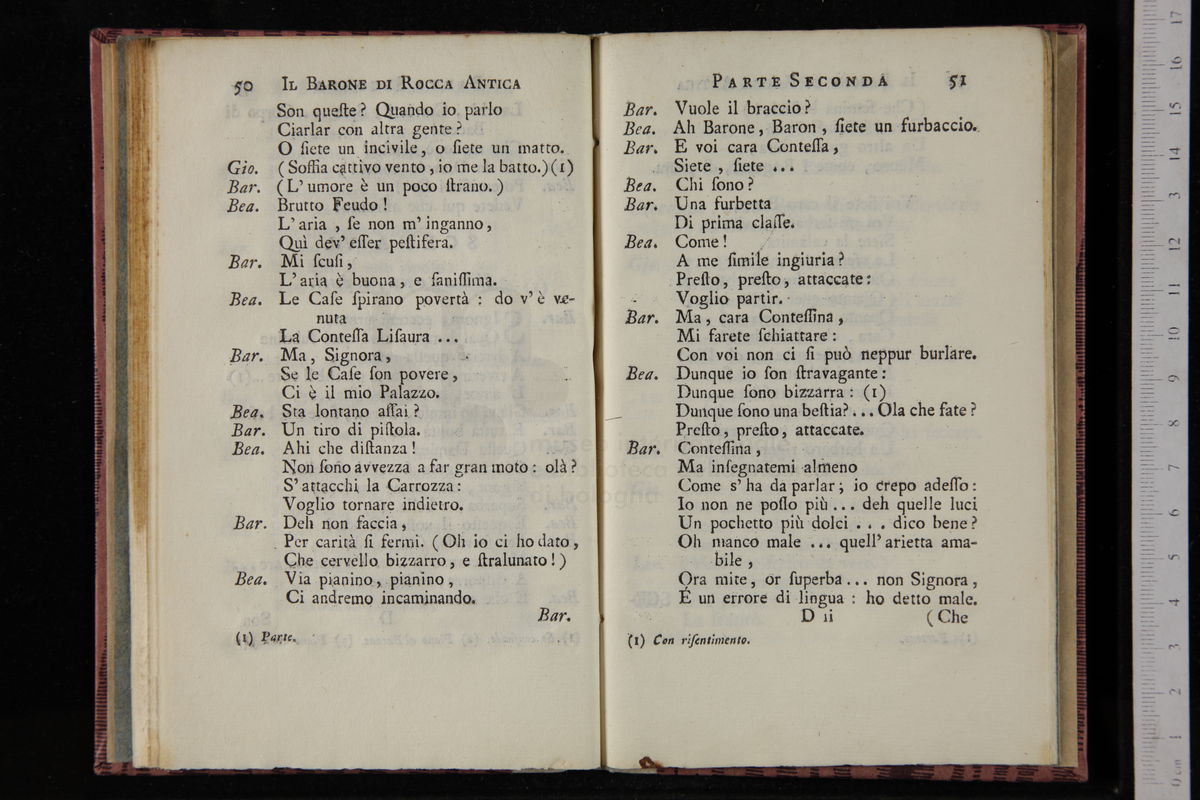 50 IL BARONE DI ROCCA ANTICA
Son queſte? Quando io parlo
Ciarlar con altra gente?
O ſiete un incivile, o ſiete un matto.
Gio. (Soffia cattivo vento, io me la batto.) (1)
Bar. (L' umore è un poco ſtrano.)
Bea. Brutto Feudo!
L' aria, ſe non m' inganno,
Quì dev' eſſer peſtifera.
Bar. Mi ſcuſi,
L' aria è buona, e ſaniſſima.
Bea. Le Caſe ſpirano povertà: do v' è ve-
nuta
La Conteſſa Liſaura ...
Bar. Ma, Signora,
Se le Caſe ſon povere,
Ci è il mio Palazzo.
Bea. Sta lontano aſſai?
Bar. Un tiro di piſtola.
Bea. Ahi che diſtanza!
Non ſono avvezza a far gran moto: olà?
S' attacchi la Carrozza:
Voglio tornare indietro.
Bar. Deh non faccia,
Per carità ſi fermi. (Oh io ci ho dato,
Che cervello bizzarro, e ſtralunato!)
Bea. Via pianino, pianino,
Ci andremo incaminando.
Bar.
(1) Parte.
PARTE SECONDA 51
Bar. Vuole il braccio?
Bea. Ah Barone, Baron, ſiete un furbaccio.
Bar. E voi cara Conteſſa,
Siete, ſiete ...
Bea. Chi ſono?
Bar. Una furbetta
Di prima claſſe.
Bea. Come!
A me ſimile ingiuria?
Preſto, preſto, attaccate:
Voglio partir.
Bar. Ma, cara Conteſſina,
Mi farete ſchiattare:
Con voi non ci ſi può neppur burlare.
Bea. Dunque io ſon ſtravagante:
Dunque ſono bizzarra: (1)
Dunque ſono una beſtia? ... Ola che fate?
Preſto, preſto, attaccate.
Bar. Conteſſina,
Ma inſegnatemi almeno
Come s' ha da parlar; io crepo adeſſo:
Io non ne poſſo più ... deh quelle luci
Un pochetto più dolci ... dico bene?
Oh manco male ... quell' arietta ama-
bile,
Ora mite, or ſuperba ... non Signora,
É un errore di lingua: ho detto male.
D ii (Che
(1) Con riſentimento.